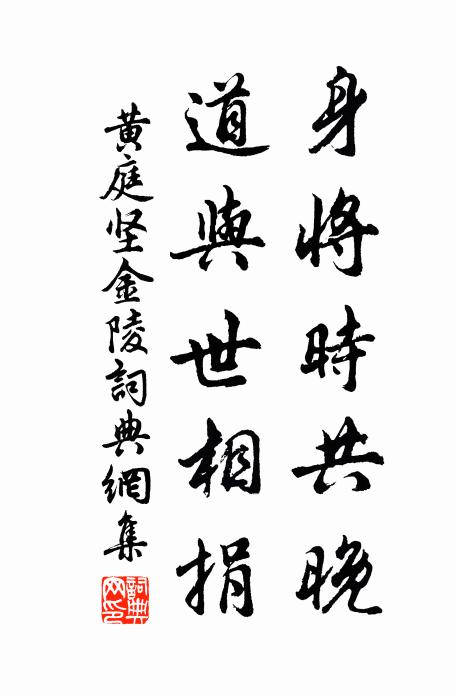 身將時共晚
道與世相捐
黃庭坚金陵詞典網集
詞典網印